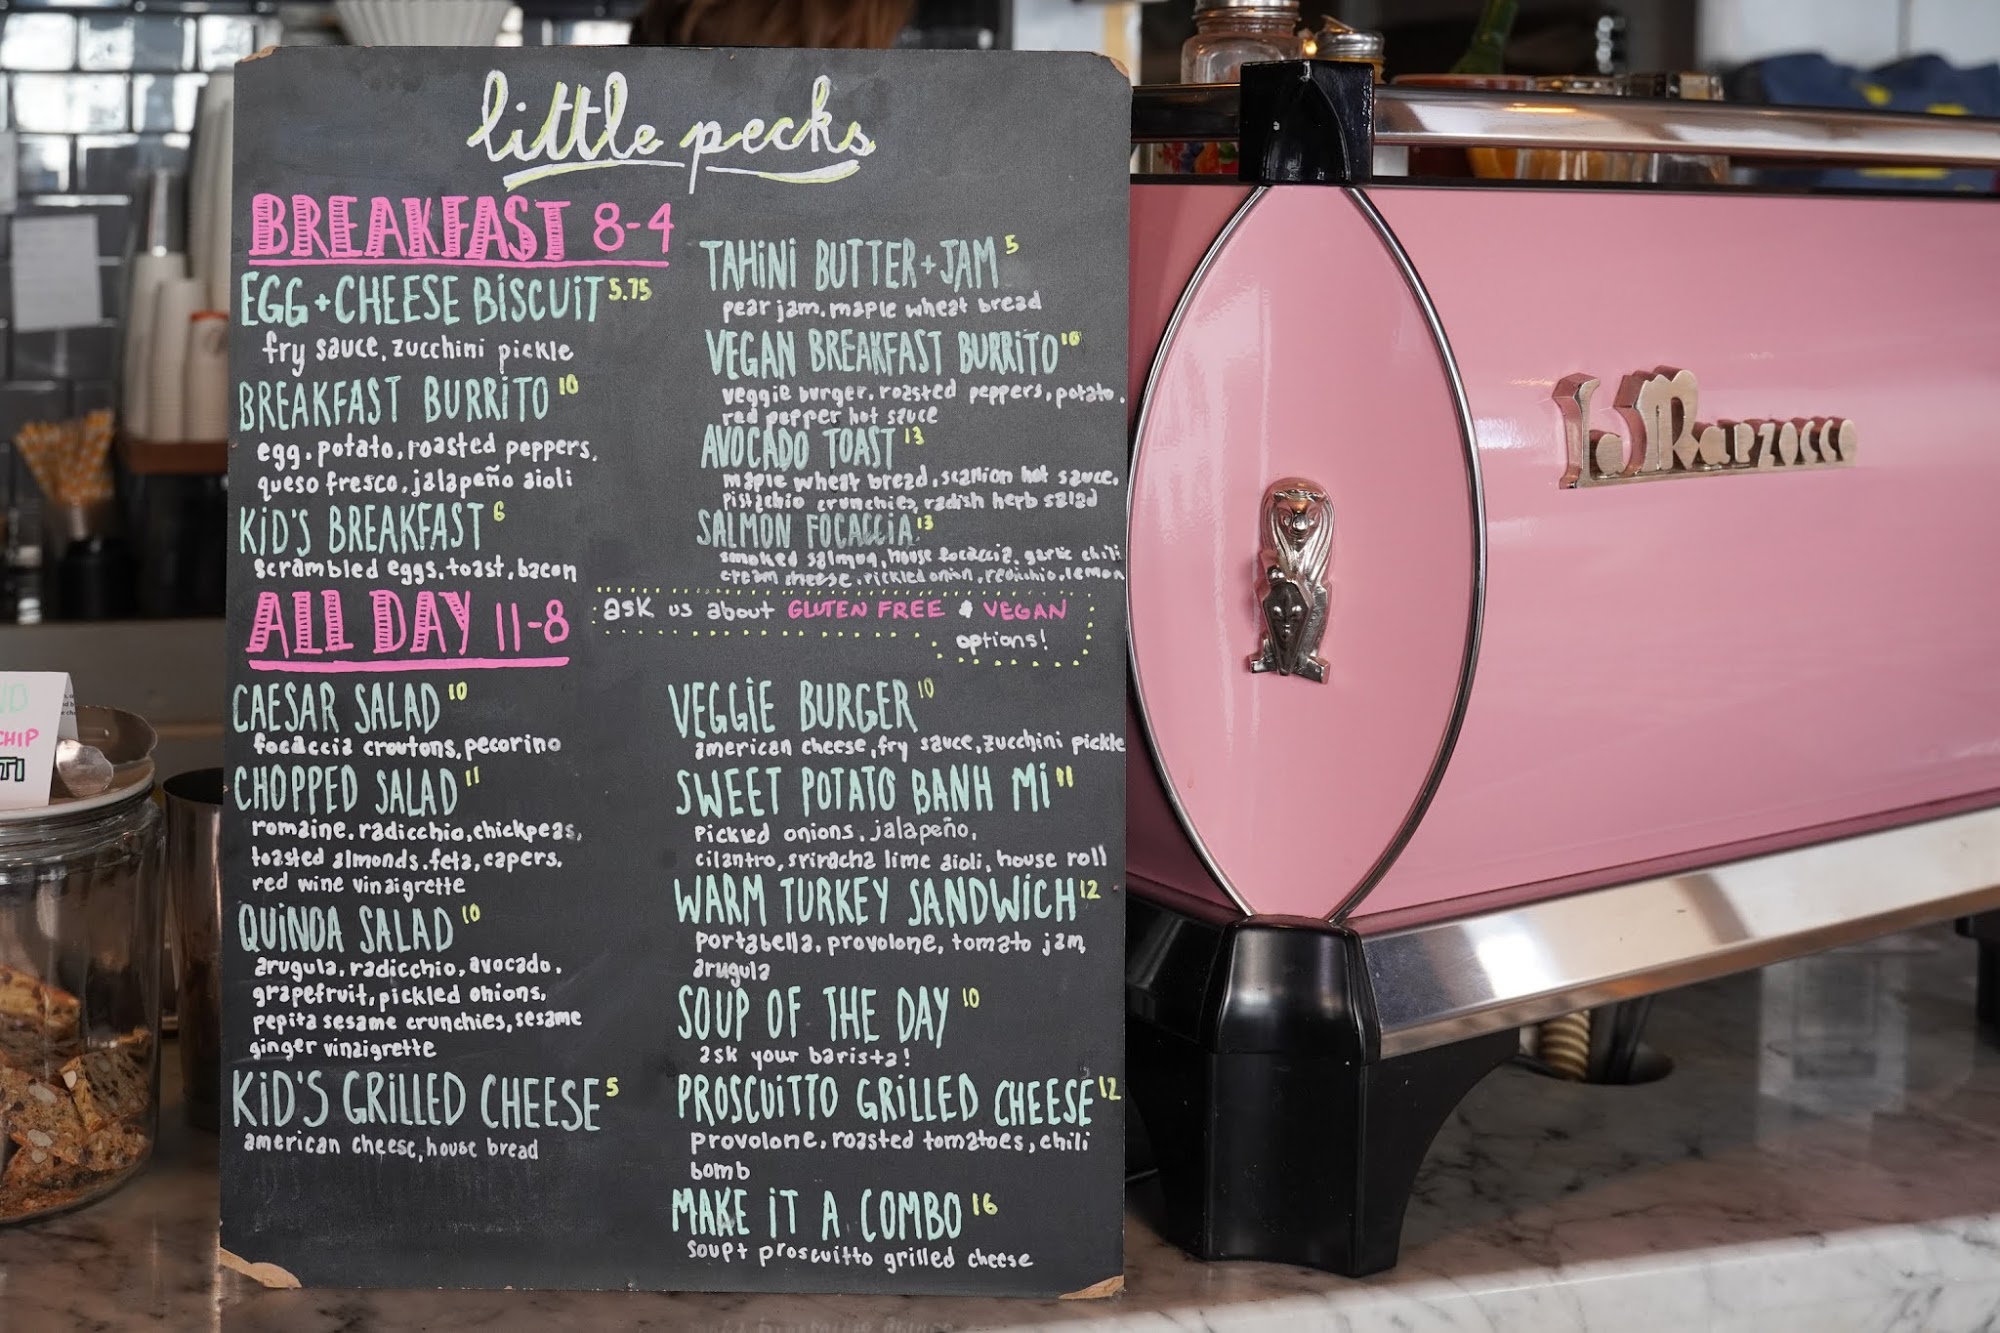 little pecks
BREAKFAST 8-4
EGG + CHEESE BISCUIT 5.75
fry sauce, zucchini pickle
BREAKFAST BURRITO 10
egg, potato, roasted peppers,
queso fresco, jalapeño aioli
KID'S BREAKFAST 6
scrambled eggs, toast, bacon
TAHINI BUTTER + JAM 5
pear jam, maple wheat bread
VEGAN BREAKFAST BURRITO 10
veggie burger, roasted peppers, potato,
red pepper hot sauce
AVOCADO TOAST 13
maple wheat bread, scallion hot sauce,
pistachio crunchies, radish herb salad
SALMON FOCACCIA 13
smoked salmon, house focaccia, garlic chili
cream cheese, pickled onion, redicchio, lemon
ask us about GLUTEN FREE & VEGAN
options!
ALL DAY 11-8
CAESAR SALAD 10
focaccia croutons, pecorino
CHOPPED SALAD 11
romaine, radicchio, chickpeas,
toasted almonds, feta, capers,
red wine vinaigrette
QUINOA SALAD 10
arugula, radicchio, avocado,
grapefruit, pickled onions,
pepita sesame crunchies, sesame
ginger vinaigrette
KID'S GRILLED CHEESE 5
american cheese, house bread
VEGGIE BURGER 10
american cheese, fry sauce, zucchini pickle
SWEET POTATO BANH MI 11
pickled onions, jalapeño,
cilantro, sriracha lime aioli, house roll
WARM TURKEY SANDWICH 12
portabella, provolone, tomato jam,
arugula
SOUP OF THE DAY 10
ask your barista!
PROSCUITTO GRILLED CHEESE 12
provolone, roasted tomatoes, chili
bomb
MAKE IT A COMBO 16
soup + proscuitto grilled cheese
La Marzocco
CHIP